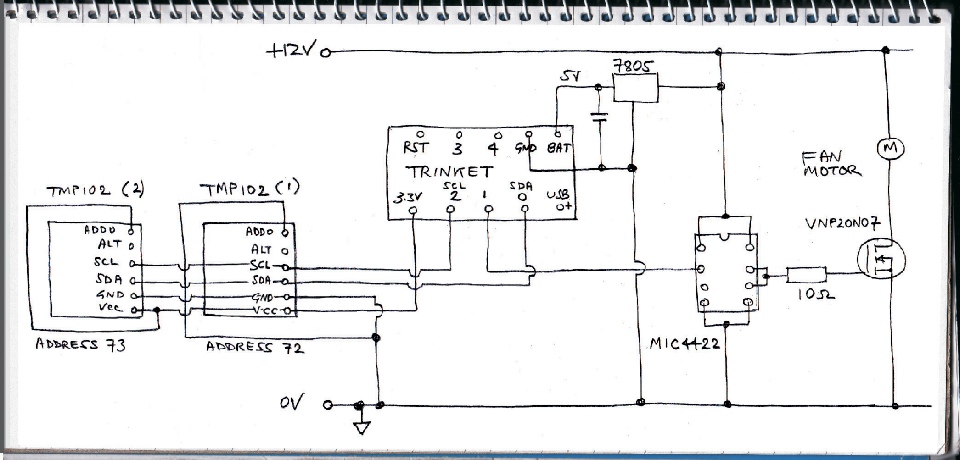 +12V
7805
5V
RST 3 4 GND BAT
TRINKET
SCL SDA
3.3V 2 1 0 USB+
M
FAN
MOTOR
VNP20N07
10Ω
MIC4422
TMP102 (2)
ADD0
ALT
SCL
SDA
GND
VCC
ADDRESS 73
TMP102 (1)
ADD0
ALT
SCL
SDA
GND
VCC
ADDRESS 72
0V